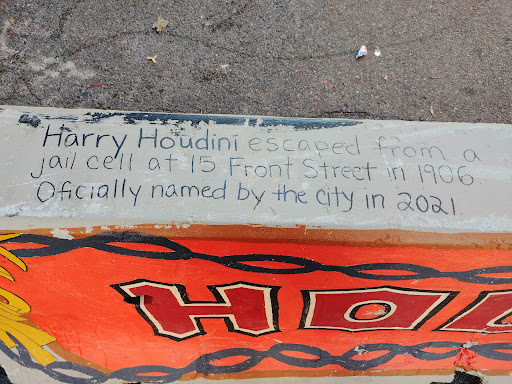 Harry Houdini escaped from a
jail cell at 15 Front Street in 1906
Oficially named by the city in 2021.
HO